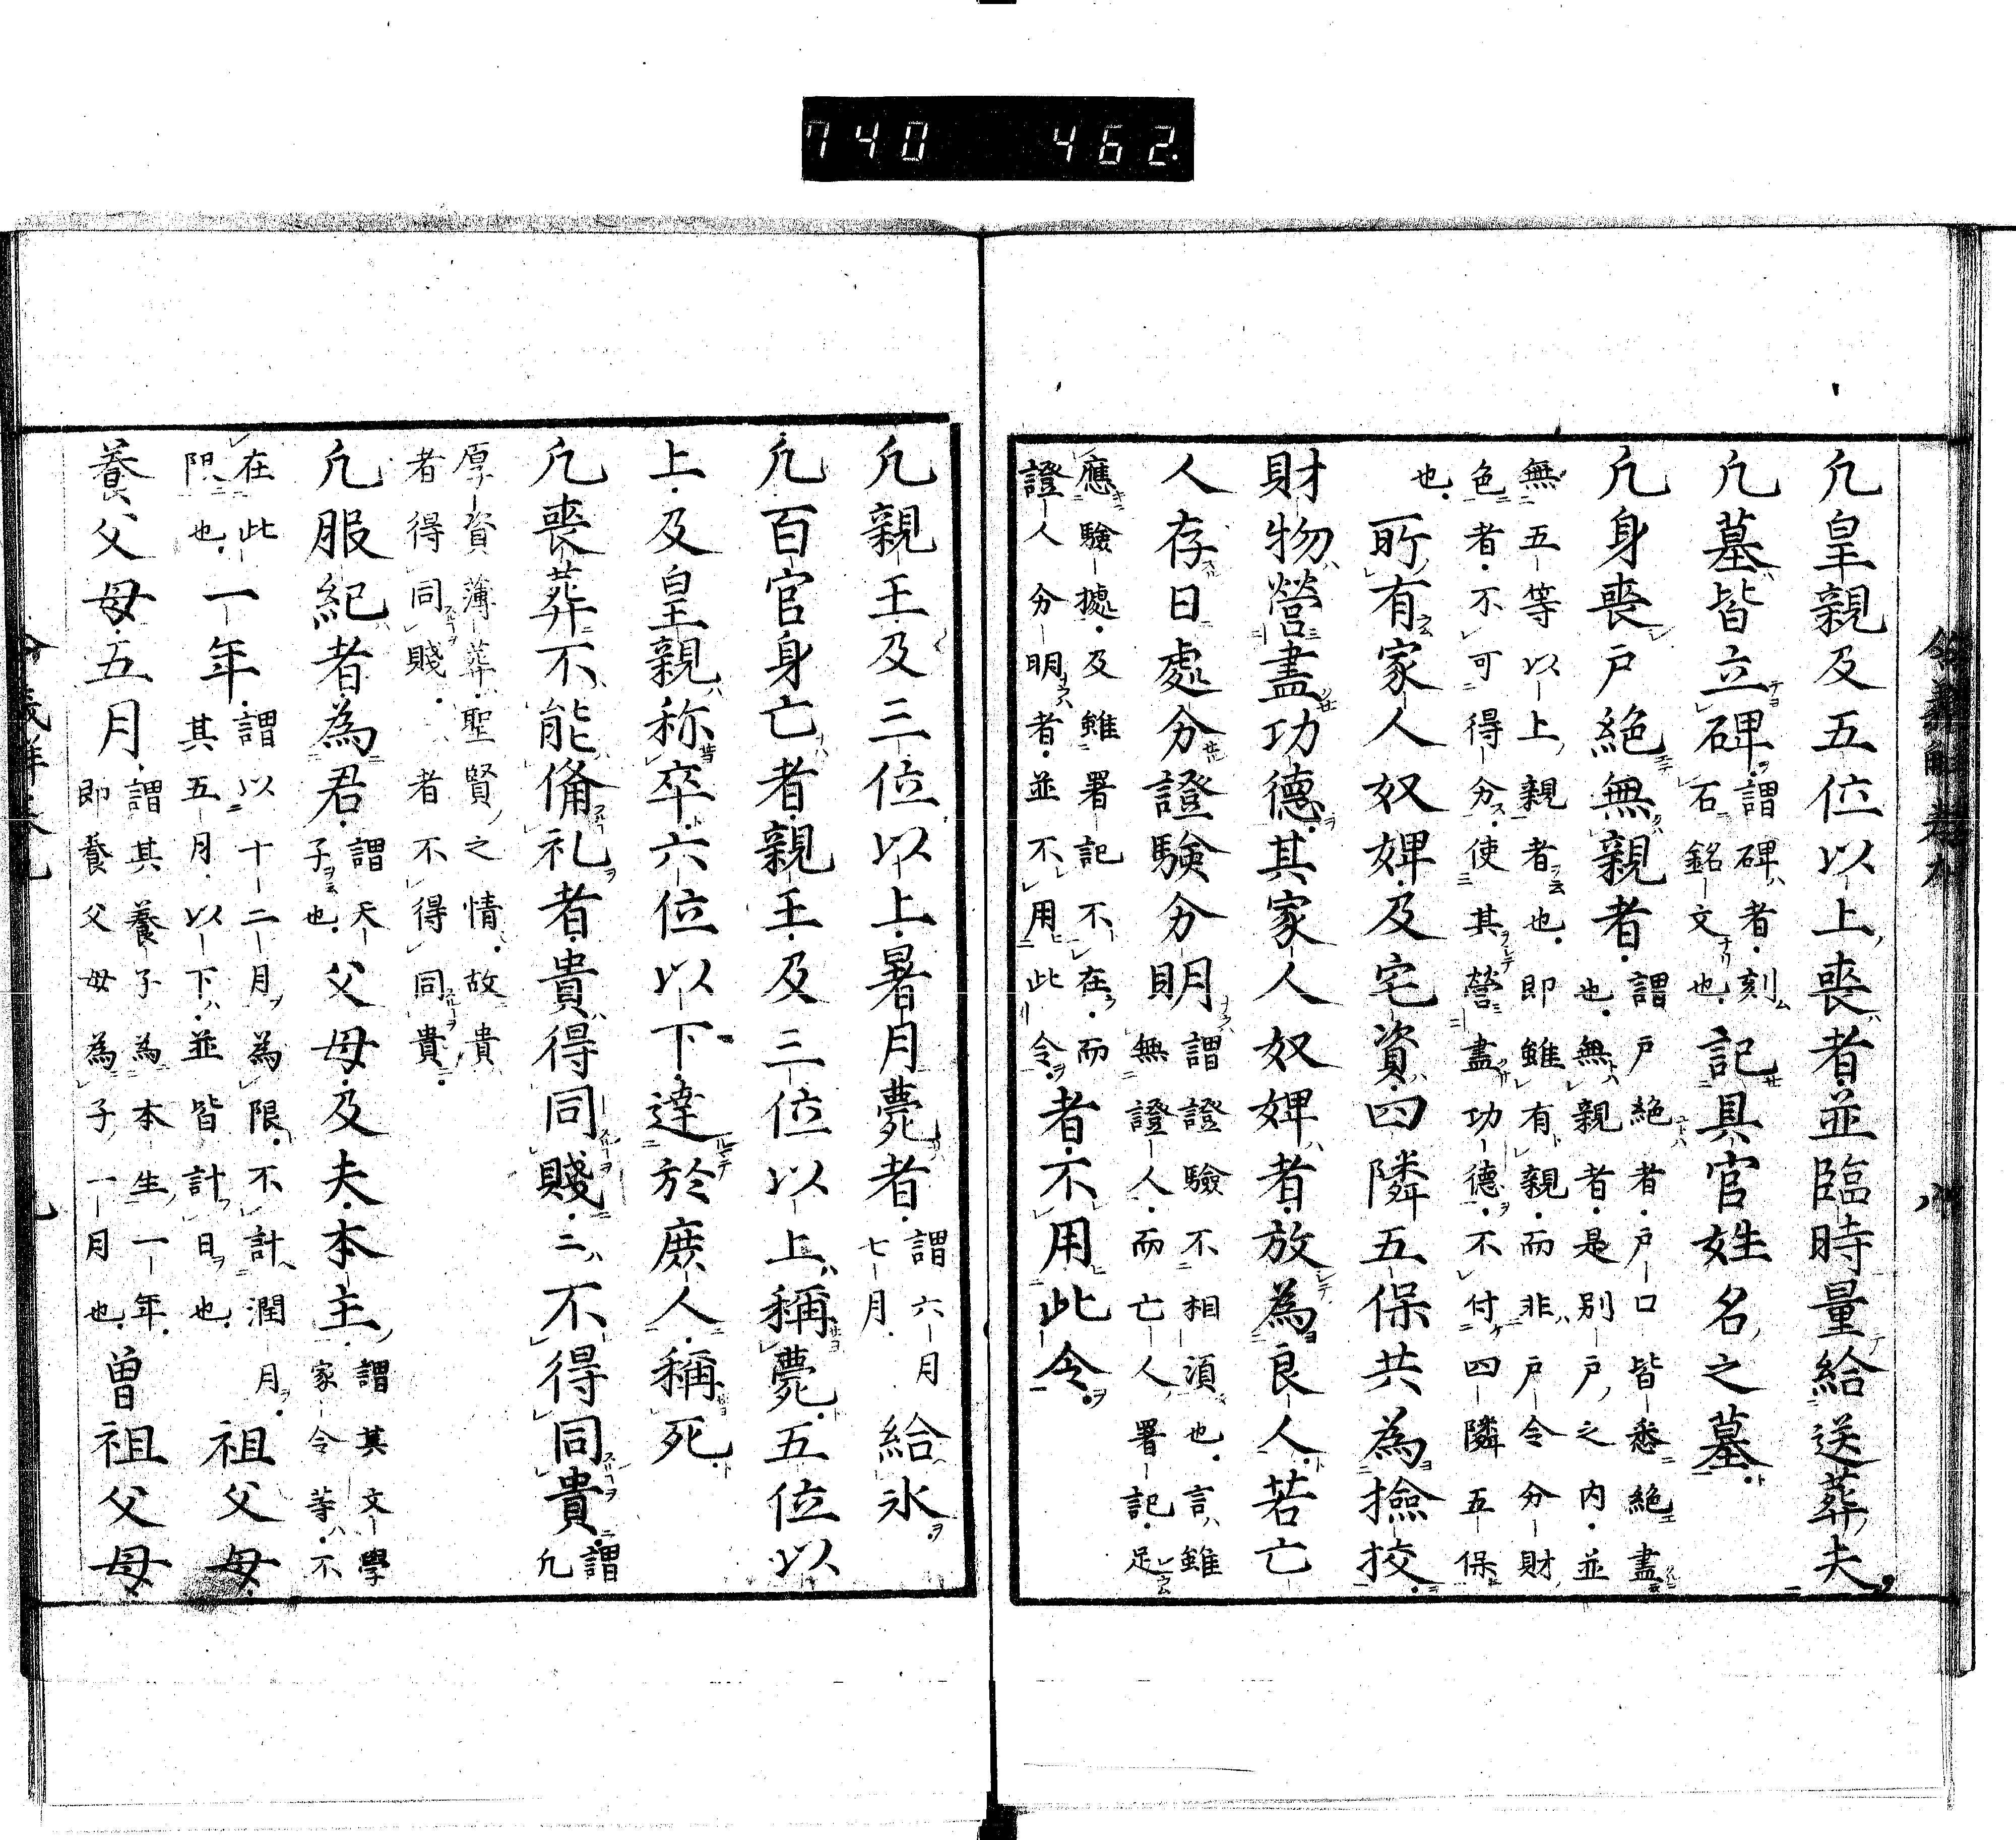 740 462
凢皇親及五位以上喪者並臨時量給送葬夫
凢墓皆立碑謂碑者刻石銘文也記具官姓名之墓
凢身喪戸絶無親者謂戸絶者戸口皆悉絶盡也無親者是別戸之内並
無五等以上親者也即雖有親而非戸令分財
色者不可得分使其營盡功德不付四隣五保
也
所有家人奴婢及宅資四隣五保共為撿挍
財物營盡功德其家人奴婢者放為良人若亡
人存日處分證驗分明謂證驗不相須也言雖無證人而亡人署記足
應驗據及雖署記不在而
證人分明者並不用此令
者不用此令
凢親王及三位以上暑月薨者謂六月七月給氷
凢百官身亡者親王及三位以上稱薨五位以
上及皇親称卒六位以下達於庶人稱死
凢喪葬不能備礼者貴得同賤二不得同貴謂凢
厚資薄葬聖賢之情故貴
者得同賤者不得同貴
凢服紀者為君謂天子也父母及夫本主謂其文學家令等不
在此
限也
一年謂以十二月為限不計潤月其五月以下並皆計日也祖父母
養父母五月謂其養子為本生一年即養父母為子一月也曽祖父母